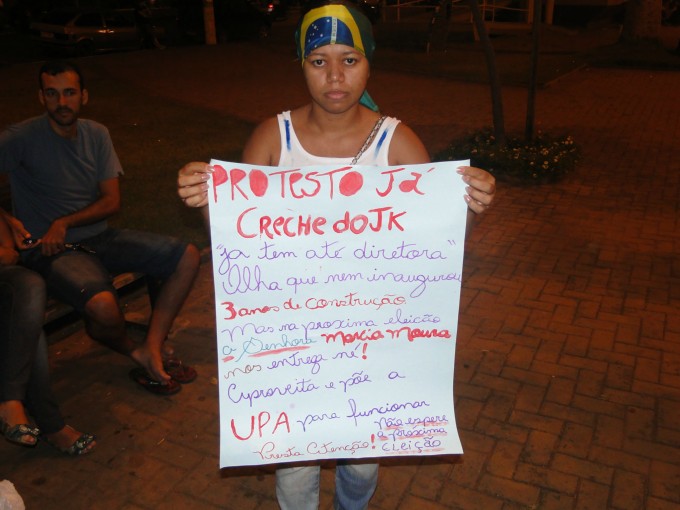 PROTESTO JÁ
CRECHE do JK
"ja tem até diretora"
Olha que nem inaugurou
3 anos de construção
Mas na proxima eleição
a senhora Marcia Moura
nos entrega né!
Aproveita e põe a
UPA para funcionar
Não espere
a próxima
eleição
Presta Atenção!